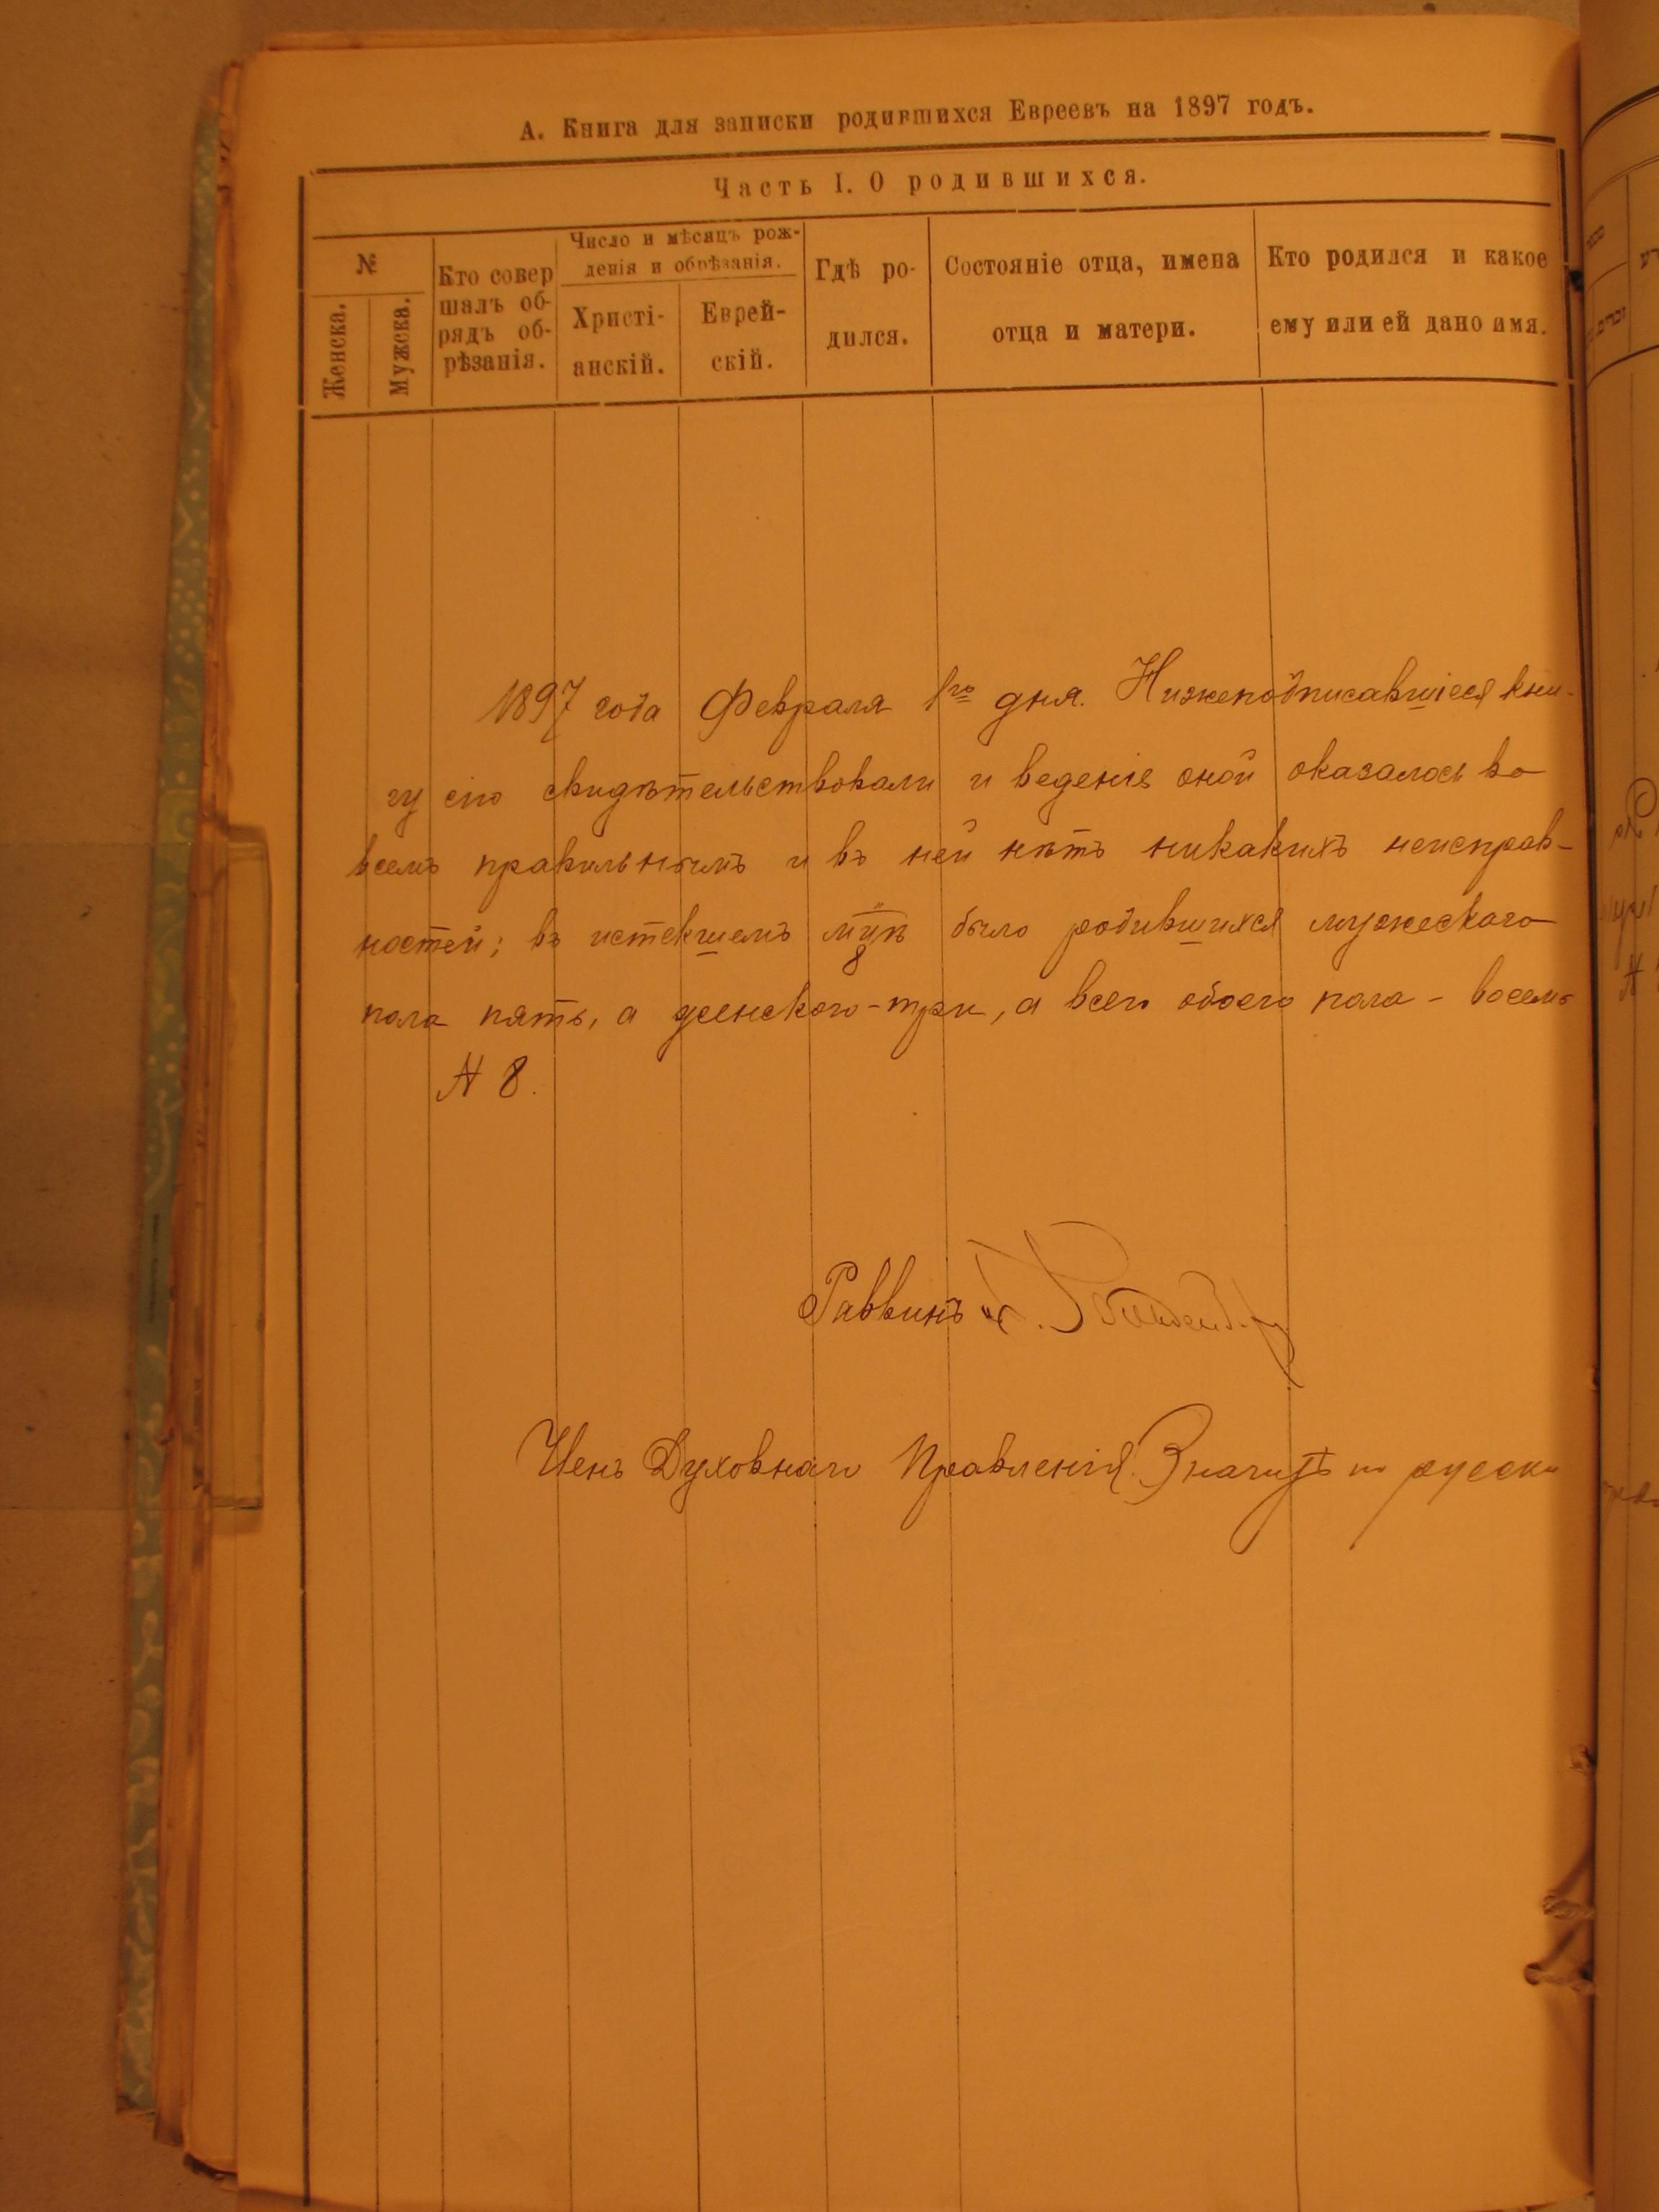 А. Книга для записки родившихся Евреевъ на 1897 годъ.
Часть I. О родившихся.
№
Женска.
Мужска.
Кто совер
шалъ об-
рядъ об-
рѣзанія.
Число и мѣсяцъ рож-
денія и обрѣзанія.
Христі-
анскій.
Еврей-
скій.
Гдѣ ро-
дился.
Состояніе отца, имена
отца и матери.
Кто родился и какое
ему или ей дано имя.
1897 года Февраля 1го дня. Нижеподписавшіеся кни-
гу сію свидѣтельствовали и веденіе оной оказалось во
всемъ правильнымъ и въ ней нѣтъ никакихъ неисправ-
ностей; въ истекшемъ м-цѣ было родившихся мужескаго
8
пола пять, а женскаго - три, а всего обоего пола - восемь
№ 8.
Раввинъ
Членъ Духовнаго Правленія по русски